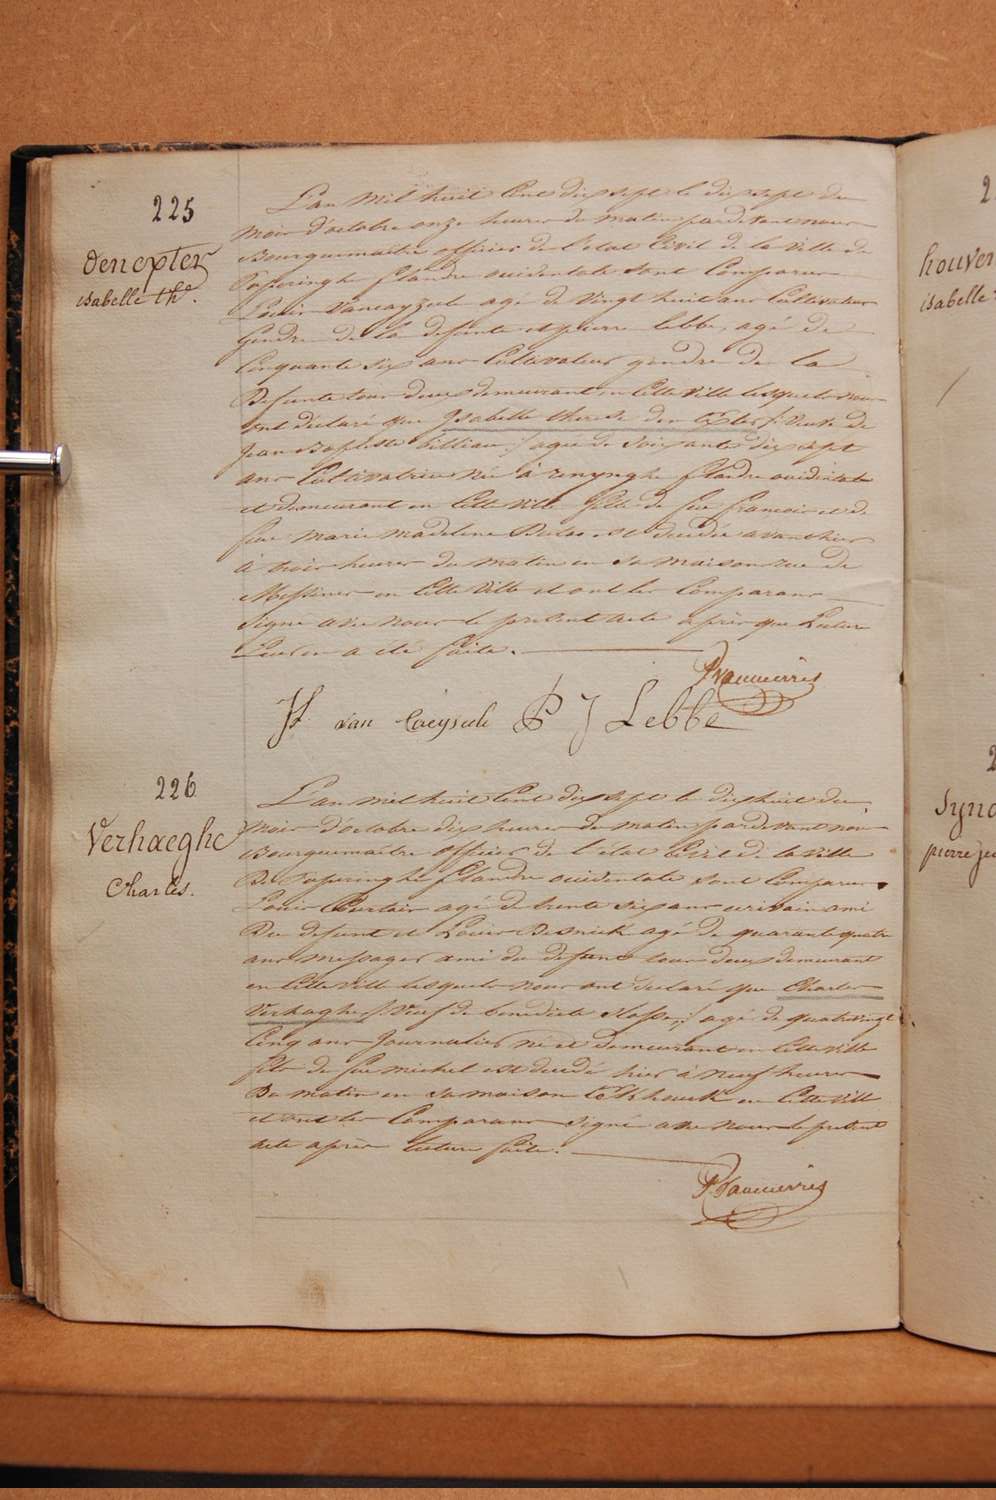 225
Denexter
isabelle th.
L'an Mil huit Cent dix sept le dix sept du
mois d'octobre onze heures du matin pardevant nous
Bourguemaitre officier de l'état Civil de la Ville de
Poperinghe flandre occidentale sont Comparus
Louis Vancayzeele agé de Vingt huit ans Cultivateur
Gendre de la defunte et pierre lebbe, agé de
Cinquante six ans Cultivateur gendre de la
Defunte tous deux demeurant en Cette Ville lesquels nous
ont déclaré que Isabelle therese den Exter /: Veuve de
Jean Baptiste Cilliau :/ agée de soixante dix sept
ans Cultivatrice Née à renynghe flandre occidentale
et demeurant en Cette Ville fille de feu francois et de
feue marie madeleine est decedée avant hier
à trois heures du matin en sa maison rue de
Messines en Cette Ville et ont les Comparans
Signé avec nous le present acte après que Lecture
Leur en a été faite.
Pvanmerris
van Caeyseele P J Lebbe
226
Verhaeghe
Charles.
L'an mil huit Cent dix sept le dix huit du
mois d'octobre dix heures du matin pardevant nous
Bourguemaitre officier de l'état Civil de la Ville
De Poperinghe flandre occidentale sont Comparus
Louis agé de trente six ans ecrivain ami
Du defunt et Louis Desnick agé de quarante quatre
ans messager ami du defunt tous deux demeurant
en Cette Ville lesquels nous ont declaré que Charles
Verhaghe /: Veuf de benedicte :/ agé de quatrevingt
Cinq ans Journalier né et demeurant en Cette Ville
fils de feu michel est decedé hier à neuf heures
Du matin en sa maison en Cette Ville
et ont les Comparans signé avec nous le present
acte après lecture faite.
Pvanmerris
2
houven
isabelle
2
Syno
pierre je